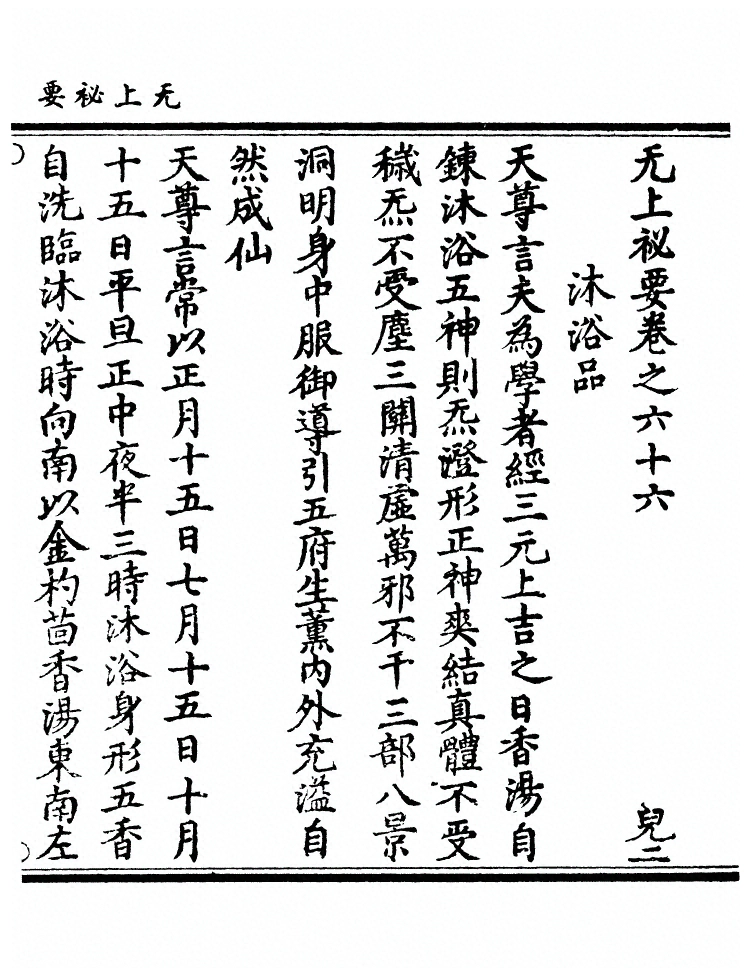 无上祕要
无上祕要卷之六十六 兒二
沐浴品
天尊言夫為學者經三元上吉之日香湯自
鍊沐浴五神則炁澄形正神爽結真體不受
穢炁不受塵三關清虛萬邪不干三部八景
洞明身中服御導引五府生薰內外充溢自
然成仙
天尊言常以正月十五日七月十五日十月
十五日平旦正中夜半三時沐浴身形五香
自洗臨沐浴時向南以金杓茴香湯東南左